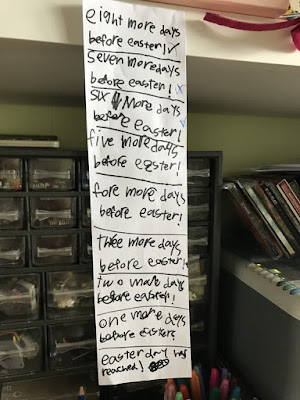 eight more days
before easter! ✓
seven more days
before easter! x
six more days
before easter! ✓
five more days
before easter!
fore more days
before easter!
thee more days
before easter!
two more days
before easter!
one more days
before easter!
easter day has
reached!